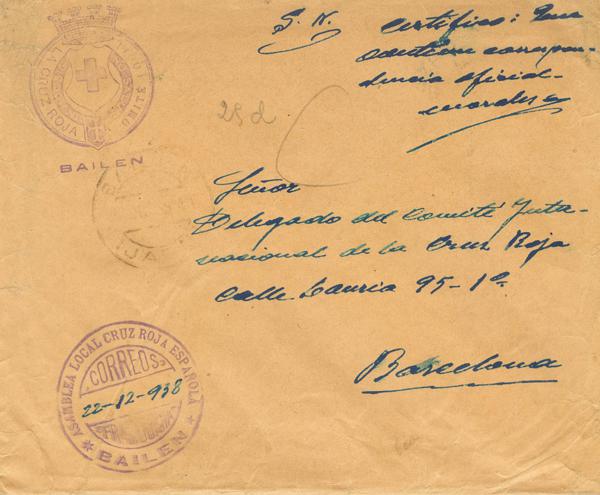 S. N.
Certífico: Que
contiene correspon-
dencia oficial-
LA CRUZ ROJA
COMITÉ
BAILEN
25 d
Señor
Delegado del Comité Inter-
nacional de la Cruz Roja
Calle Lauria 95-1º.
Barcelona
ASAMBLEA LOCAL CRUZ ROJA ESPAÑOLA
CORREOS
22-12-938
BAILEN